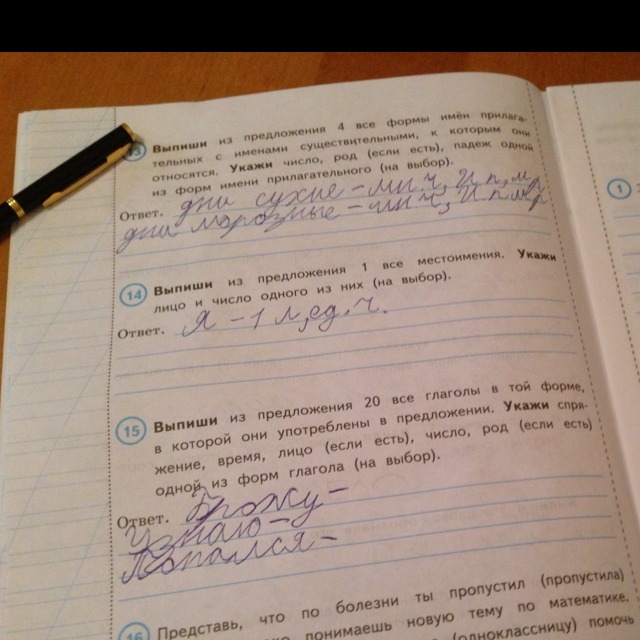 13 Выпиши из предложения 4 все формы имён прилага-
тельных с именами существительными, к которым они
относятся. Укажи число, род (если есть), падеж одной
из форм имени прилагательного (на выбор).
Ответ. дни сухие – мн.ч, И.п, м.р
дни морозные – мн ч, И п м р
1
14 Выпиши из предложения 1 все местоимения. Укажи
лицо и число одного из них (на выбор).
Ответ. Я – 1 л, ед. ч.
15 Выпиши из предложения 20 все глаголы в той форме,
в которой они употреблены в предложении. Укажи спря-
жение, время, лицо (если есть), число, род (если есть)
одной из форм глагола (на выбор).
Ответ. Брожу –
Узнаю –
Попался –
16 Представь, что по болезни ты пропустил (пропустила)
понимаешь новую тему по математике.
(однокласснику) помочь